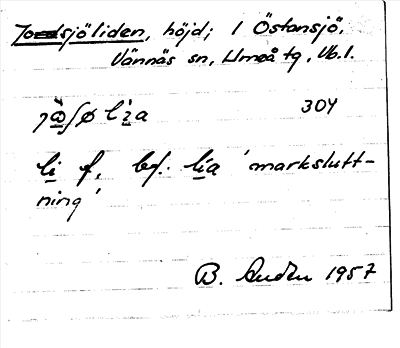 sjöliden, höjd; 1 Östansjö,
Vännäs sn, Umeå tg, Vb.l.
304
li f, bf. lia 'markslutt-
ning'
B. Lindén 1957